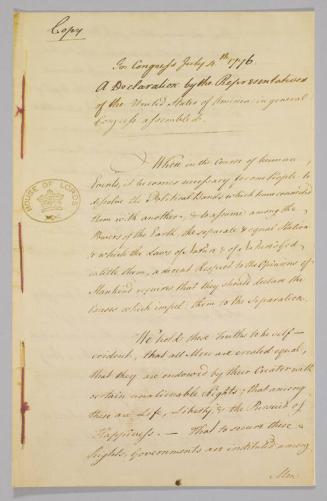 Copy
In Congress July 4th 1776.
A Declaration by the Representatives
of the United States of America in general
Congress assembled.
When in the Course of human
Events, it becomes necessary for one People to
dissolve the Political Bands which have connected
them with another, & to assume among the
Powers of the Earth, the separate & equal Station
to which the Laws of Nature & of Nature's God
entitle them, a decent Respect to the Opinions of
Mankind requires that they should declare the
Causes which impel them to the Separation.
HOUSE OF LORDS
We hold these Truths to be self-
evident, that all Men are created equal,
that they are endowed by their Creator with
certain unalienable Rights; that among
these are Life, Liberty, & the Pursuit of
Happiness. — That to secure these
Rights, Governments are instituted among
Men